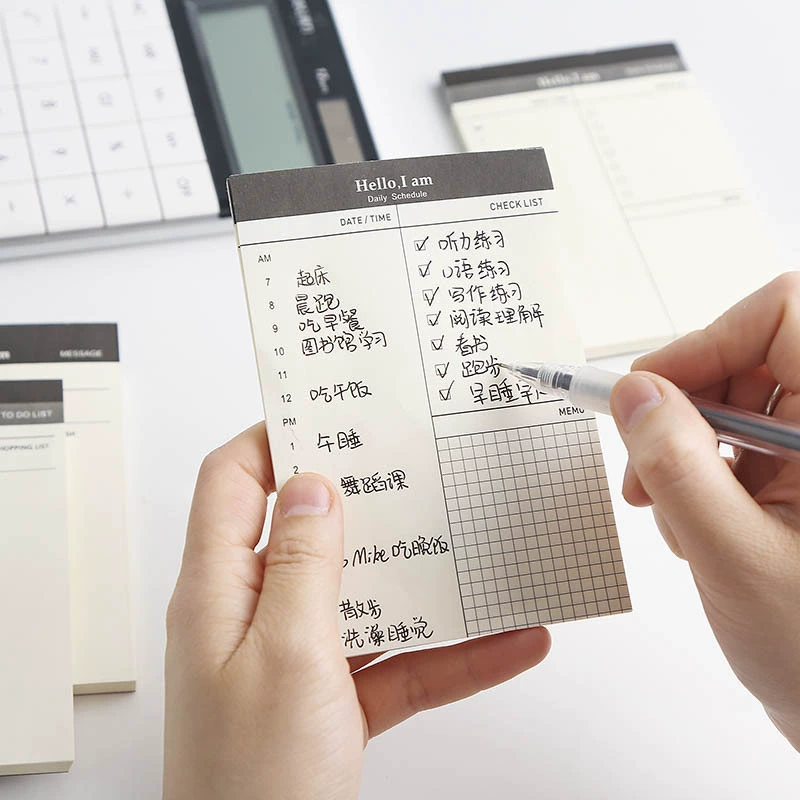 Hello, I am
Daily Schedule
DATE / TIME
AM
7 起床
8 晨跑
9 吃早餐
10 图书馆学习
11
12 吃午饭
PM
1 午睡
2
舞蹈课
Mike 吃晚饭
散步
洗澡睡觉
CHECK LIST
听力练习
口语练习
写作练习
阅读理解
看书
跑步
早睡早
MEMO
Hello, I am
MESSAGE
TO DO LIST
HOPPING LIST